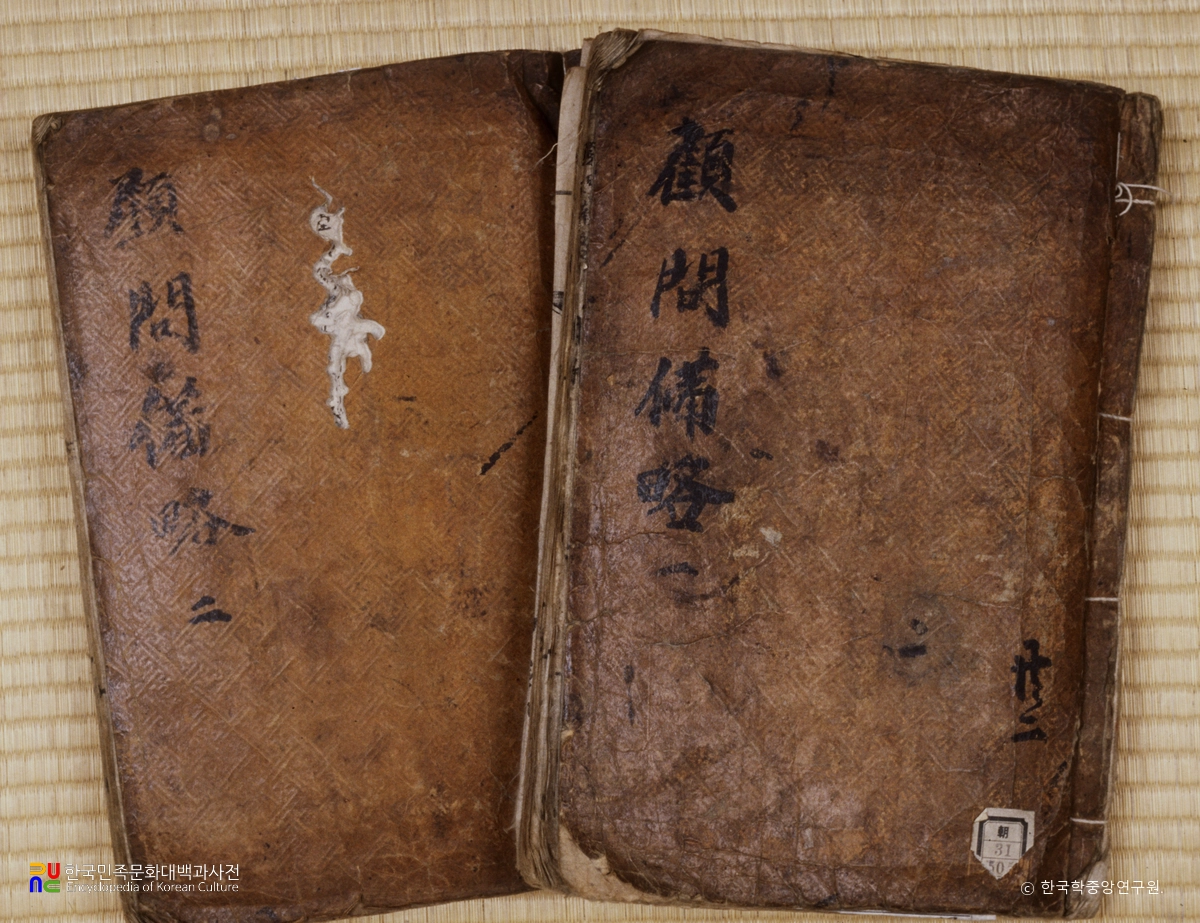 顧問備略
二
顧問備略
一
共二
朝
31
50
한국민족문화대백과사전
Encyclopedia of Korean Culture
© 한국학중앙연구원.